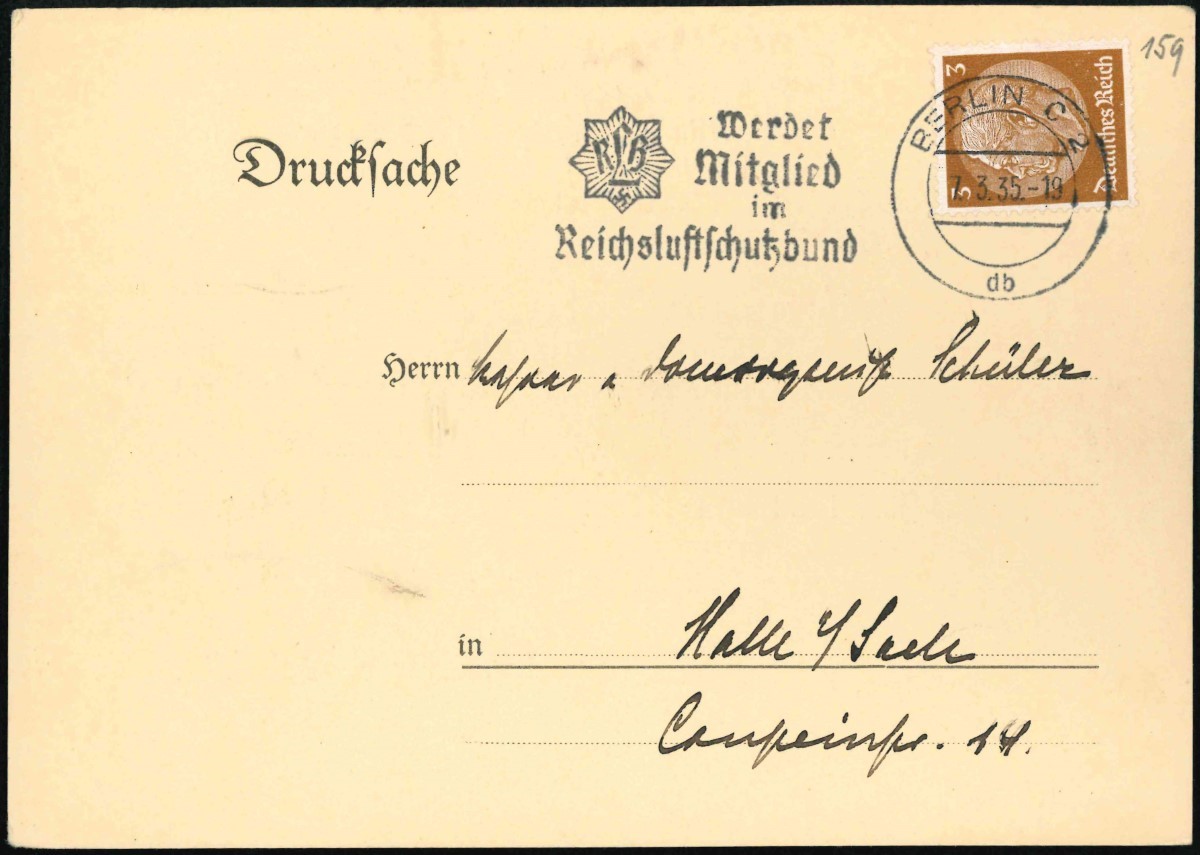 159
3 3
Deutsches Reich
BERLIN C 2
7.3.35.-19
db
RLB
Werdet
Mitglied
im
Reichsluftschutzbund
Drucksache
Herrn Schüler
in Halle a/Saale
14.